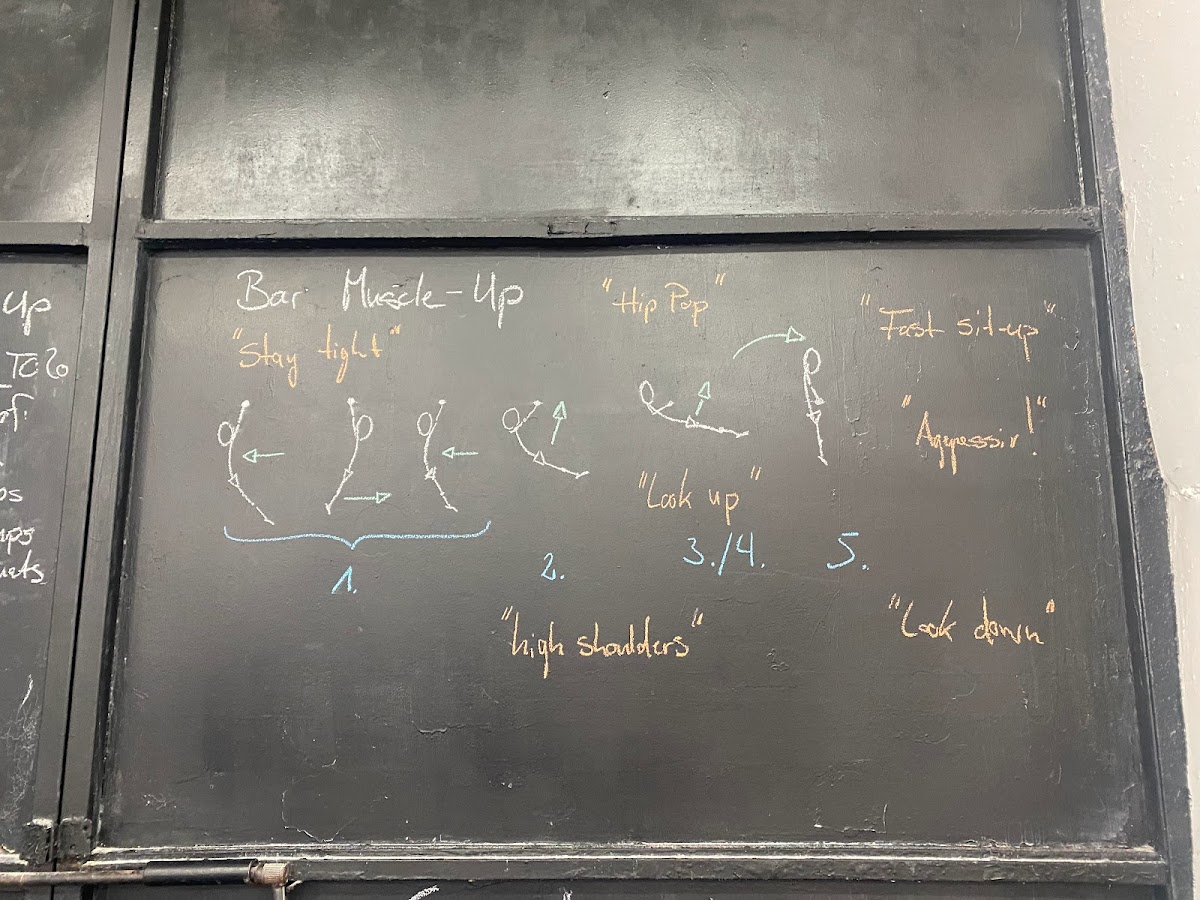 Up
TC6
Bar Muscle-Up
"Stay tight"
"Hip Pop"
"Fast sit-up"
"Aggressiv!"
"Look up"
1.
2.
3./4.
5.
"high shoulders"
"Look down"